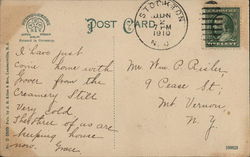 POST CARD
STOCKTON
JUN
2
7 PM
1910
N.J.
I have just
come home with
Grover from the
Creamery Still
very cold
The three of us are
keeping house
now. Grace
Mr Wm P Risler
9 Pease St.
Mt Vernon
N. Y.